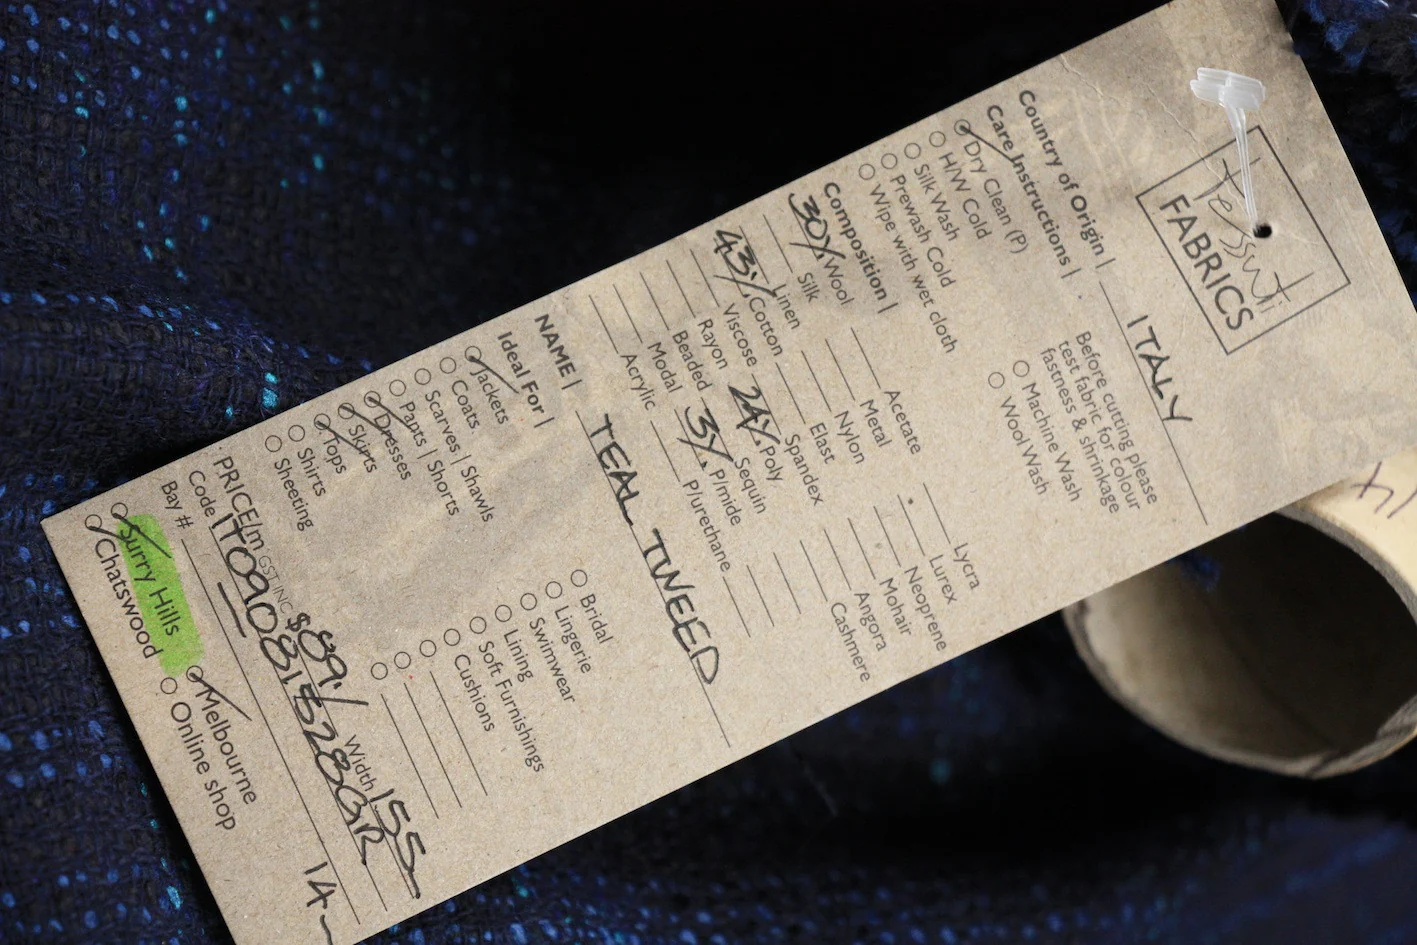 Tessuti
FABRICS
Country of Origin | ITALY
Care Instructions |
Dry Clean (P)
H/W Cold
Silk Wash
Prewash Cold
Wipe with wet cloth
Before cutting please
test fabric for colour
fastness & shrinkage
Machine Wash
Wool Wash
Composition |
30% Wool
Silk
Linen
43% Cotton
Viscose
Rayon
Beaded
Modal
Acrylic
Acetate
Metal
Nylon
Elast
Spandex
24% Poly
Sequin
3% P/mide
P/urethane
Lycra
Lurex
Neoprene
Mohair
Angora
Cashmere
NAME | TEAL TWEED
Ideal For |
Jackets
Coats
Scarves | Shawls
Pants | Shorts
Dresses
Skirts
Tops
Shirts
Sheeting
Bridal
Lingerie
Swimwear
Lining
Soft Furnishings
Cushions
PRICE/m GST INC $89./ Width 155
Code ITO90815280GR
Bay # 14
Surry Hills
Chatswood
Melbourne
Online shop